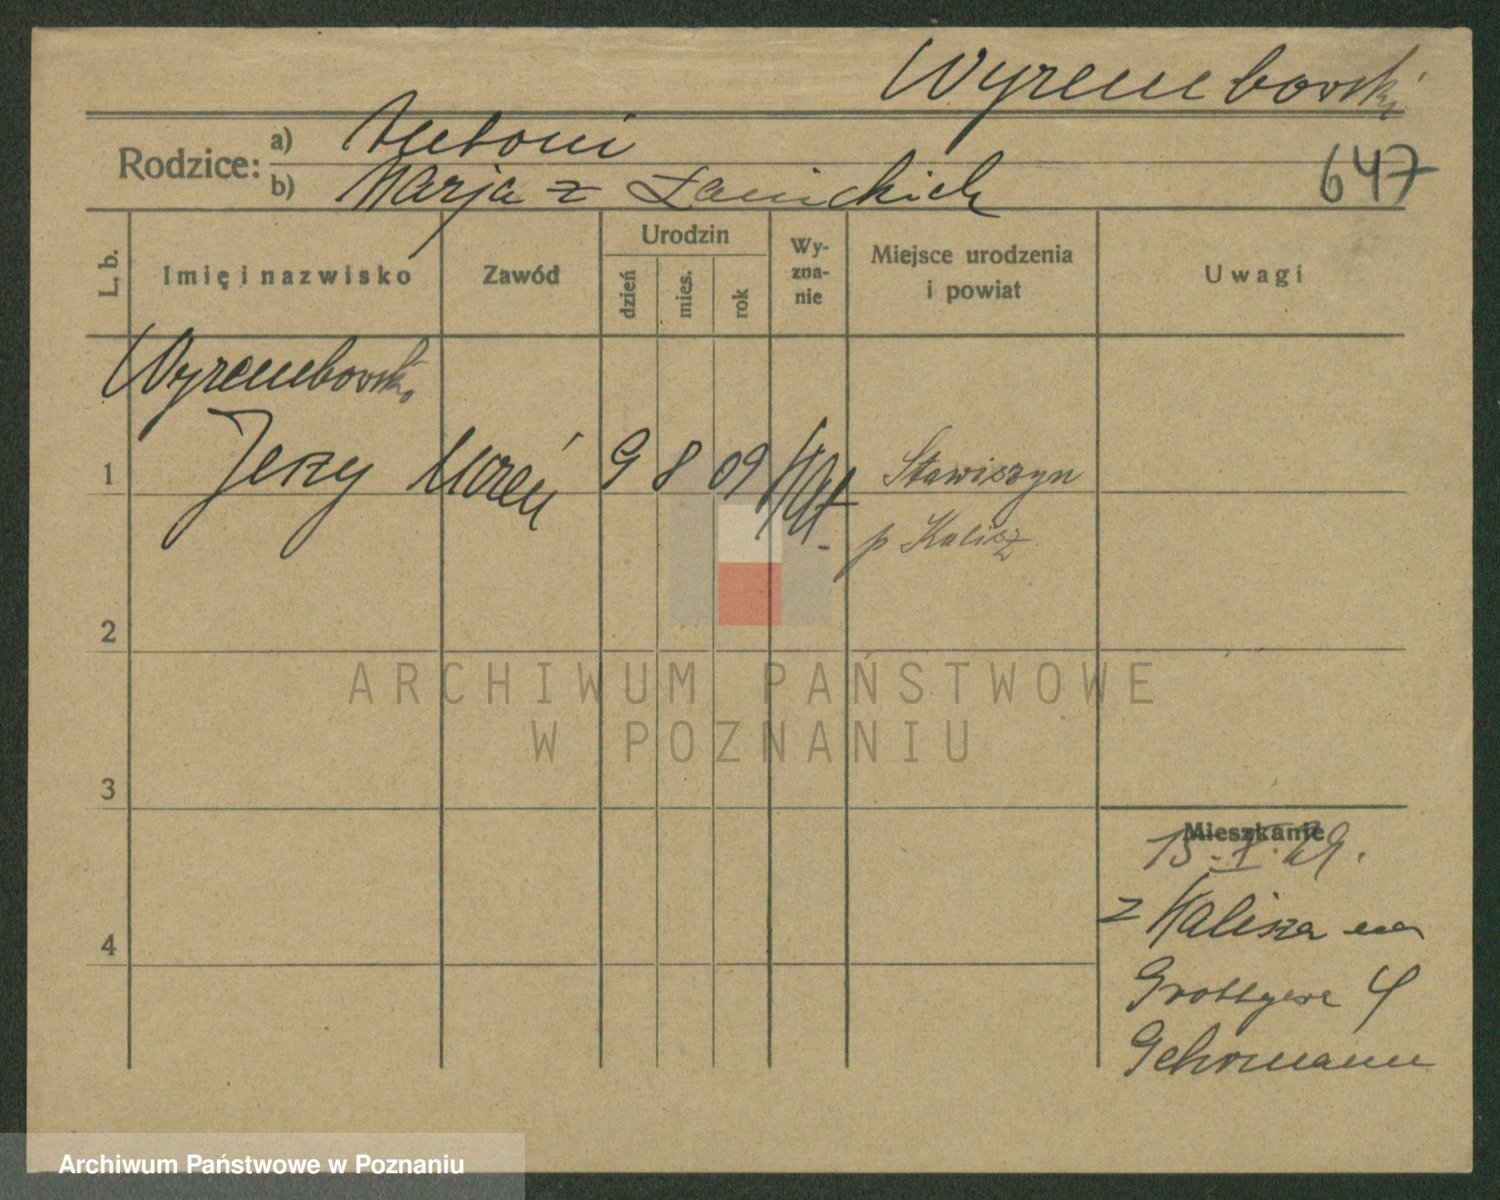 Wyrembowski
Rodzice:
a) Antoni
b) Marja z Łanickich
647
L. b.
Imię i nazwisko
Zawód
Urodzin
dzień
mies.
rok
Wy-
zna-
nie
Miejsce urodzenia
i powiat
Uwagi
Wyrembowski
1 Jerzy uczeń 9 8 09 kat. Stawiszyn
p Kalisz
2
3
4
ARCHIWUM PAŃSTWOWE
W POZNANIU
Mieszkanie
15. X. 29.
z Kalisza na
Grottgera 4
Archiwum Państwowe w Poznaniu